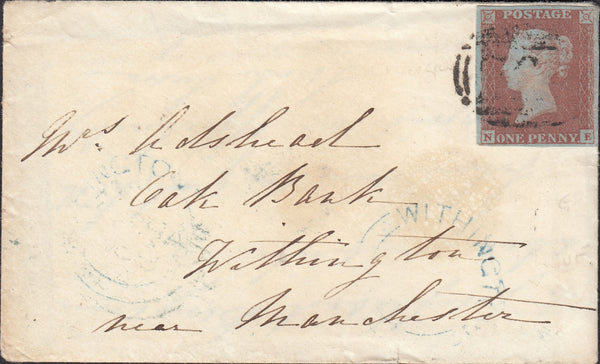 POSTAGE
N ONE PENNY E
Mrs Adshead
Oak Bank
Withington
near Manchester
WITHINGT
NGTO